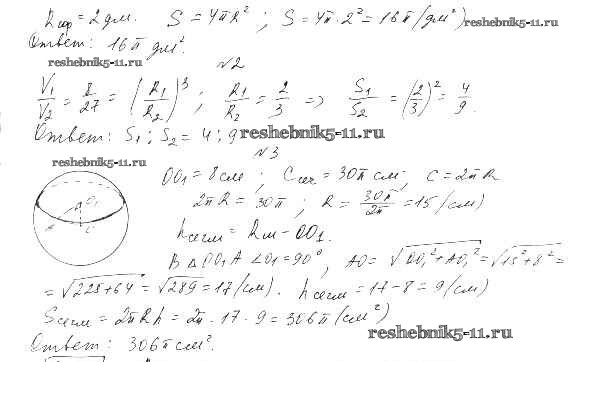 Rшар = 2 дм. S = 4πR² ; S = 4π·2² = 16π (дм²) reshebnik5-11.ru
Ответ: 16π дм².
reshebnik5-11.ru N2
V₁/V₂ = 8/27 = (R₁/R₂)³ ; R₁/R₂ = 2/3 => S₁/S₂ = (2/3)² = 4/9.
Ответ: S₁ : S₂ = 4 : 9 reshebnik5-11.ru
reshebnik5-11.ru N3
OO₁ = 8 см ; Cсеч = 30π см ; C = 2πR
2πR = 30π ; R = 30π/2π = 15 (см)
hсегм = Rш - OO₁.
В △OO₁A ∠O₁ = 90°, AO = √OO₁² + AO₁² = √15² + 8² =
= √225 + 64 = √289 = 17 (см). hсегм = 17 - 8 = 9 (см)
Sсегм = 2πRh = 2π · 17 · 9 = 306π (см²)
reshebnik5-11.ru
Ответ: 306π см².